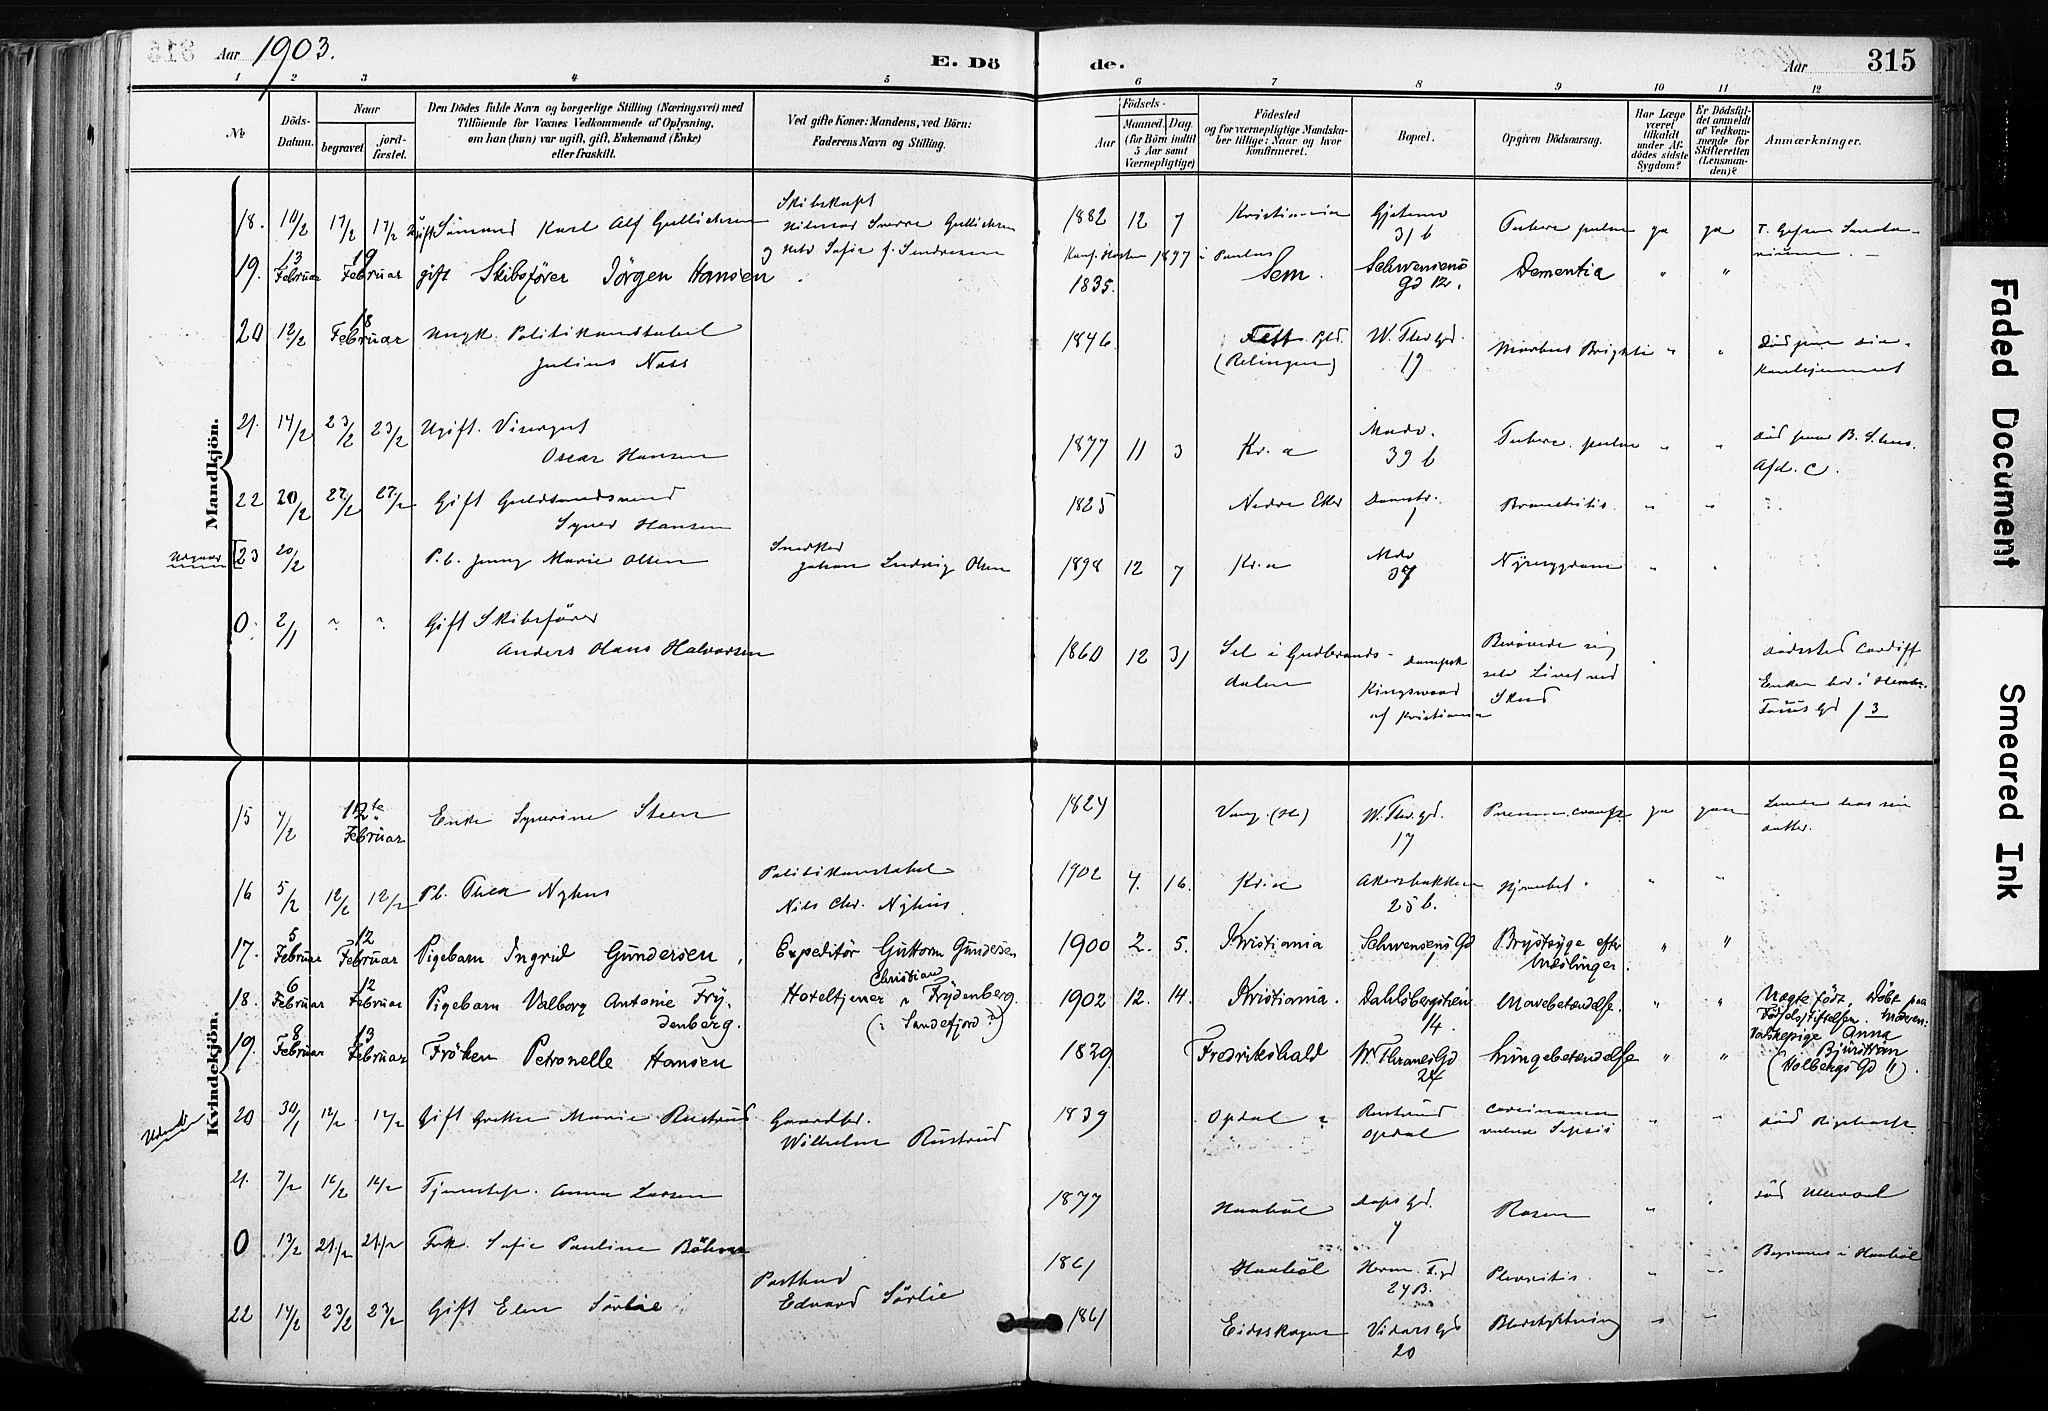 Aar 1903.
E. Dö
de.
Aar
315
1 2 3 4 5 6 7 8 9 10 11 12
No
Döds-Datum.
Naar
begravet
jord-fæstet.
Den Dödes fulde Navn og borgerlige Stilling (Næringsvei) med
Tilföiende for Voxnes Vedkommende af Oplysning,
om han (hun) var ugift, gift, Enkemand (Enke)
eller fraskilt.
Ved gifte Koner: Mandens, ved Börn:
Faderens Navn og Stilling.
Födsels-
Aar
Maaned. Dag.
(for Börn indtil
5 Aar samt
Værnepligtige)
Födested
og for værnepligtige Mandska-
ber tillige: Naar og hvor
konfirmeret.
Bopæl.
Opgiven Dödsaarsag.
Har Læge
været
tilkaldt
under Af-
dödes sidste
Sygdom?
Er Dödsfal-
det anmeldt
af Vedkom-
mende for
Skifteretten
(Lensman-
den)?
Anmærkninger.
Mandkjön.
18. 10/2 17/2 17/2 Ugift Sömand Karl Alf Gullichsen
Skibskapt
Gullichsen
1882 12 7 Kristiania
31 b
Tuberc. pulm ja ja
19. 13 Februar 19 Februar gift Skibsförer Jörgen Hansen
1835. Sem. Schwensens Gd 12. Dementia " "
20 12/2 18 Februar Ungk. Politikonstabel
Julius Næss
1846 Fett Pgld. (Relingen) W. Thr. gd. 19 Morbus Brightii " "
21. 14/2 23/2 23/2 Ugift. Visergut
Oscar Hansen
1877 11 3 Kr.a 39 b Tuberc. pulm " " död paa B. S.hus.
Afd. C.
22 20/2 27/2 27/2 Gift
Hansen
1825 Nedre Eker Damstr. 1 Bronchitis. " "
23 20/2 P.b. Jenny Marie Olsen
Snedker
Johan Ludvig Olsen
1898 12 7 Kr.a 37 Nyresygdom " "
0. 2/1 " " Gift Skibsförer
Anders Hans Halvorsen
1860 12 31 Sel i Gudbrands-
dalen
Dampsk
Kingswood
af Kristiania
Berövede sig
selv Livet ved
Skud
Dödssted Cardiff
Enken bor i
Fosss Gd 13
Kvindekjön.
15 7/2 12te Februar Enke Syverine Steen
1824 Vang. (H) W. Thr. gd. 17 ja
datter.
16 5/2 12/2 12/2 Pb. Thea Nyhus
Politikonstabel
Nils Chr. Nyhus.
1902 4. 16. Kr.a Akersbakken 25 b. " "
17. 5 Februar 12 Februar Pigebarn Ingrid Gundersen,
Expeditör Guttorm Gundersen
1900 2. 5. Kristiania Schwensens Gd 1 Brystsyge efter
Mæslinger. " "
18. 6 Februar 12 Februar Pigebarn Valborg Antonie Fry-
denberg.
Hoteltjener Christian Frydenberg.
(i Sandefjord?)
1902 12. 14. Kristiania. Dahlsbergstien 14. Mavebetændelse. " "
Uægte födt. Döbt paa
Födselsstiftelsen. Moderen:
Vaskepige Anna
Bjurström
(Holbergs Gd 11).
19. 8 Februar 13 Februar Fröken Petronelle Hansen
1829 Fredrikshald W. Thranes Gd 24 Lungebetændelse " "
20 30/1 12/2 12/2 Gift Grethe Marie Rustrud
Gaardbr.
Wilhelm Rustrud
1839 Opdal Rustrud
Opdal
Sepsis " " död Righosp.
21. 7/2 16/2 16/2 Tjenestep. Anna Larsen
1877 Haaböl 7 Rosen " " död Ullevaal
0 13/2 21/2 21/2 Frk. Sofie Pauline Böhmer
1861 Haaböl Herm. F. gd
24 B. " " Begraves i Haaböl
22 14/2 23/2 23/2 Gift Elen Sörlie
Postbud
Edvard Sörlie
1861 Eidsskogen Vidars Gd 20 Blodstyrtning " "
Faded Document
Smeared Ink